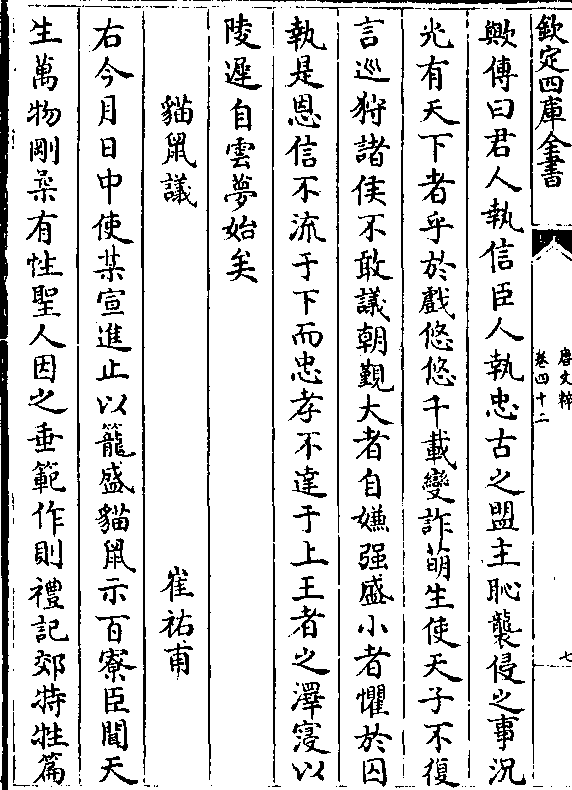 欽定四庫全書
唐文粹
卷四十二
七
歟傳曰君人執信臣人執忠古之盟主恥襲侵之事況
光有天下者乎於戲悠悠千載變詐萌生使天子不復
言巡狩諸侯不敢議朝覲大者自嫌强盛小者懼於囚
執是恩信不流于下而忠孝不達于上王者之澤寖以
陵遲自雲夢始矣
貓鼠議
崔祐甫
右今月日中使某宣進止以籠盛貓鼠示百寮臣聞天
生萬物剛柔有性聖人因之垂範作則禮記郊特牲篇